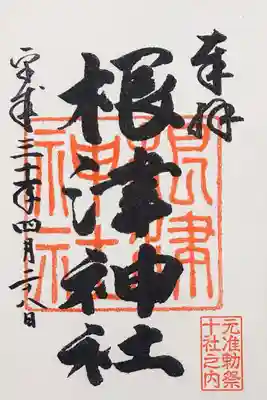 奉拝
根津神社
根津
神社
平成三十年四月二八日
元准勅祭
十社之内